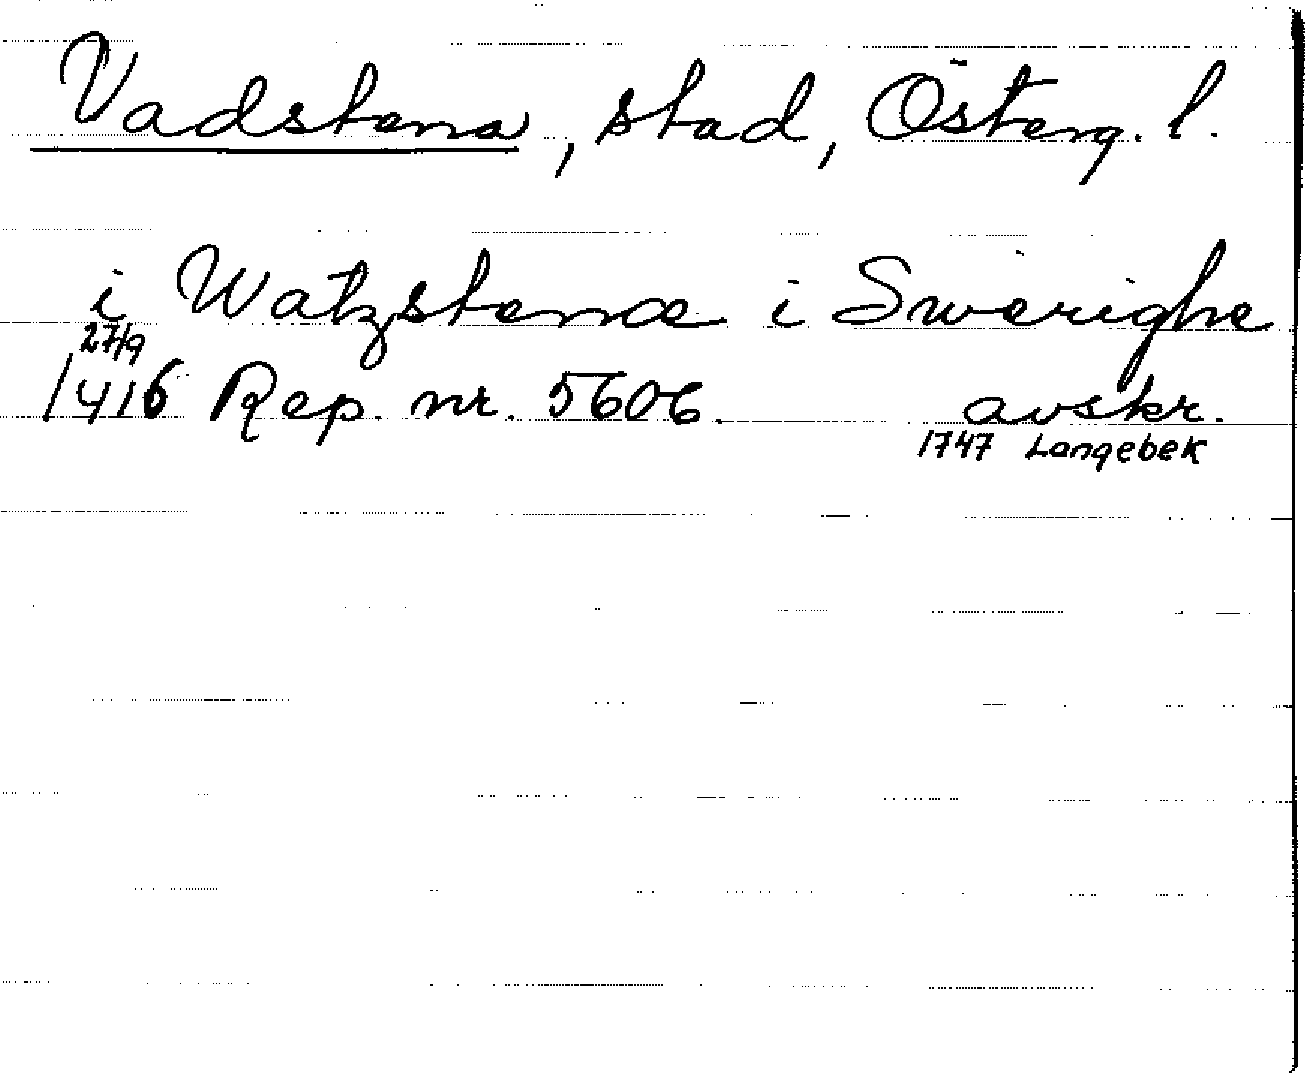 Vadstena, stad, Österg. l.
i Watzstenæ i Swerighe
27/9
1416 Rep. nr. 5606. avskr.
1747 Langebek